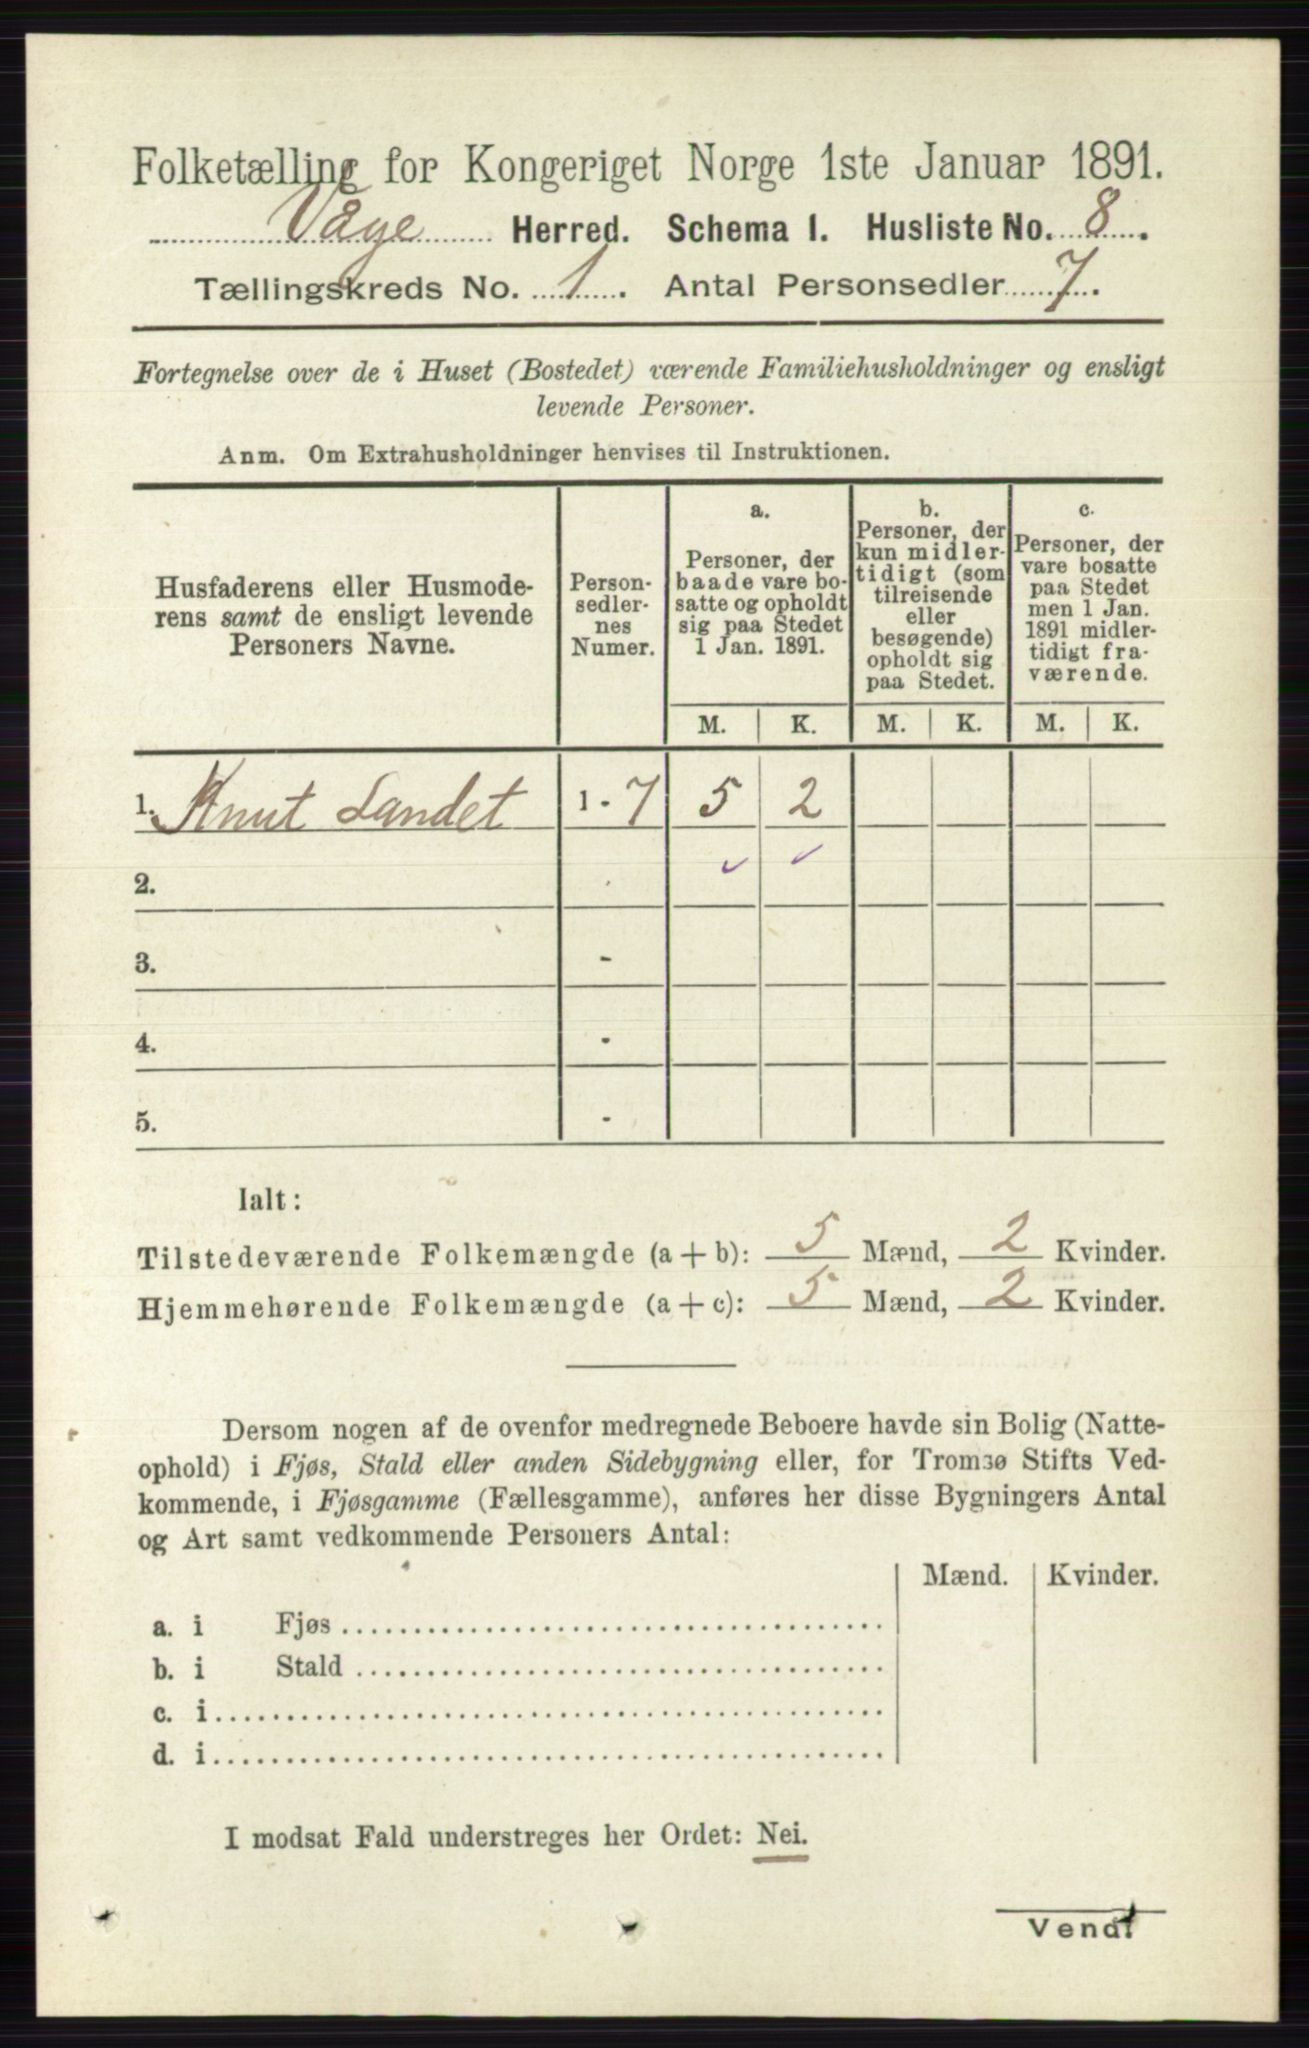 Folketælling for Kongeriget Norge 1ste Januar 1891.
Våge Herred. Schema I. Husliste No. 8.
Tællingskreds No. 1. Antal Personsedler 7.
Fortegnelse over de i Huset (Bostedet) værende Familiehusholdninger og ensligt
levende Personer.
Anm. Om Extrahusholdninger henvises til Instruktionen.
Husfaderens eller Husmode-
rens samt de ensligt levende
Personers Navne.
Person-
sedler-
nes
Numer.
a.
Personer, der
baade vare bo-
satte og opholdt
sig paa Stedet
1 Jan. 1891.
b.
Personer, der
kun midler-
tidigt (som
tilreisende
eller
besøgende)
opholdt sig
paa Stedet.
c.
Personer, der
vare bosatte
paa Stedet
men 1 Jan.
1891 midler-
tidigt fra-
værende.
M. K. M. K. M. K.
1. Knut Landet 1 - 7 5 2
2.
3. -
4. -
5. -
Ialt:
Tilstedeværende Folkemængde (a + b): 5 Mænd, 2 Kvinder.
Hjemmehørende Folkemængde (a + c): 5 Mænd, 2 Kvinder.
Dersom nogen af de ovenfor medregnede Beboere havde sin Bolig (Natte-
ophold) i Fjøs, Stald eller anden Sidebygning eller, for Tromsø Stifts Ved-
kommende, i Fjøsgamme (Fællesgamme), anføres her disse Bygningers Antal
og Art samt vedkommende Personers Antal:
Mænd. Kvinder.
a. i Fjøs
b. i Stald
c. i
d. i
I modsat Fald understreges her Ordet: Nei.
Vend!